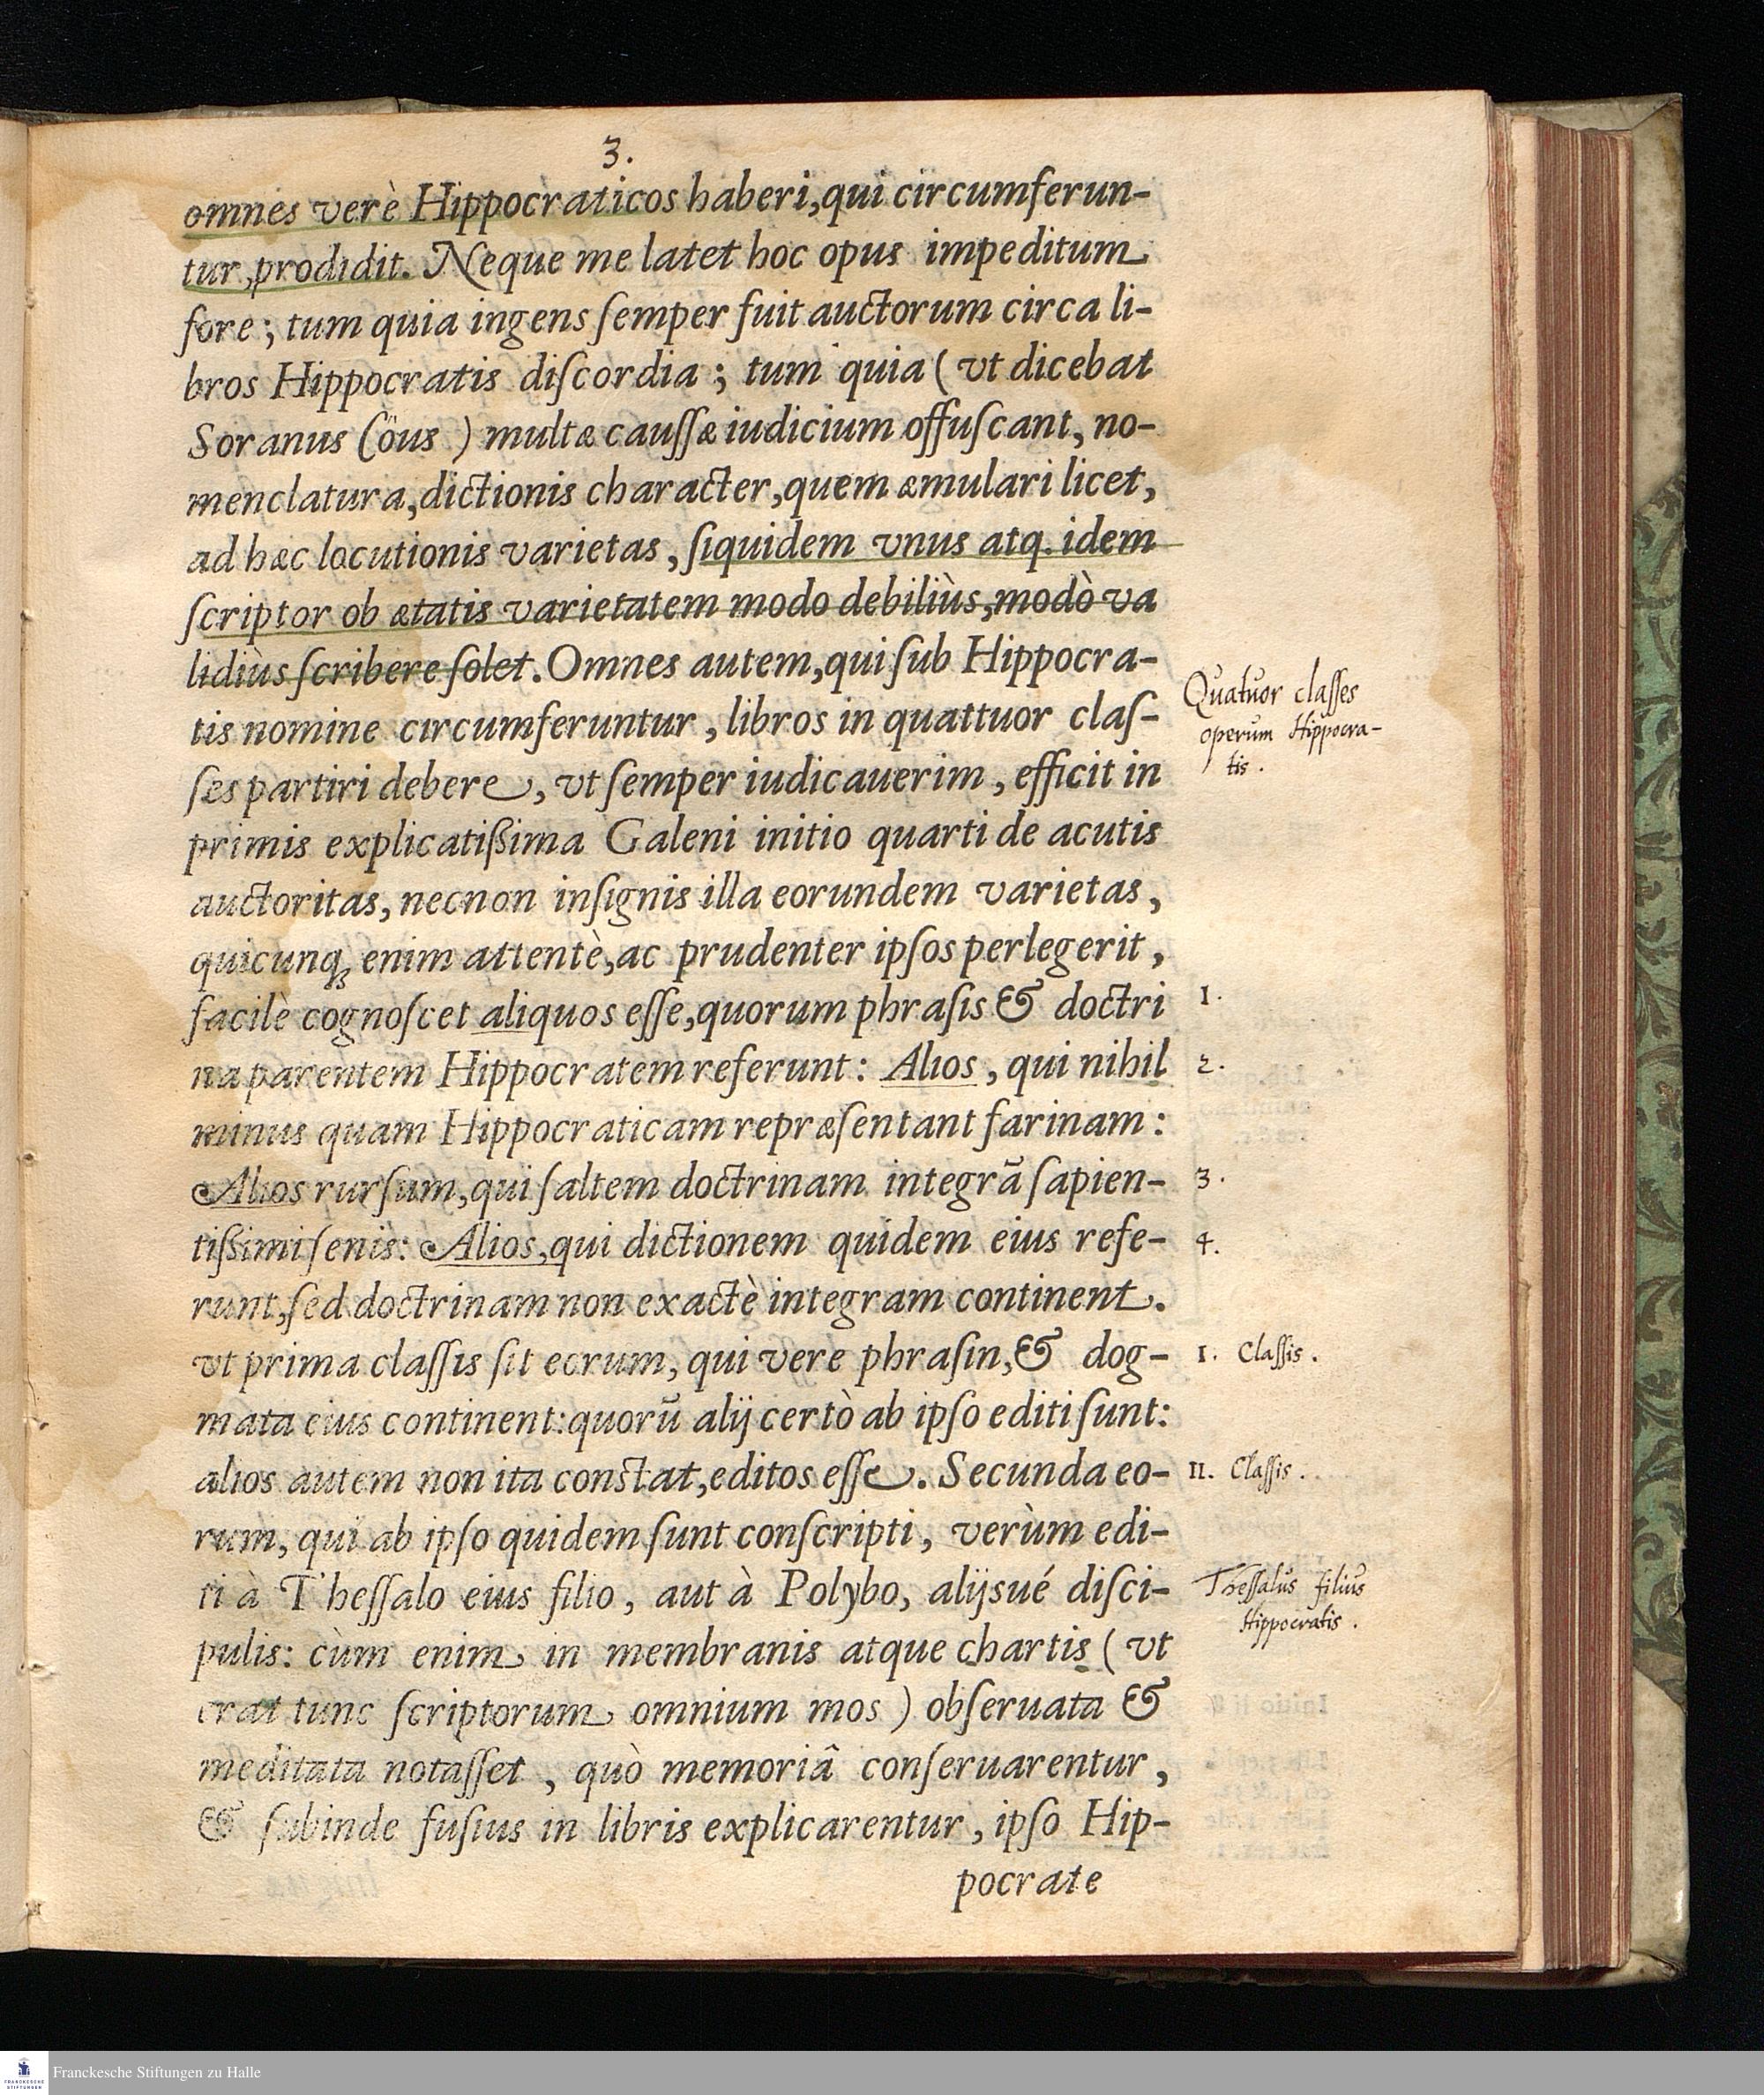 3.
omnes verè Hippocraticos haberi, qui circumferun-
tur, prodidit. Neque me latet hoc opus impeditum
fore; tum quia ingens ſemper fuit auctorum circa li-
bros Hippocratis diſcordia; tum quia (vt dicebat
Soranus Cöus) multæ cauſſæ iudicium offuſcant, no-
menclatura, dictionis character, quem æmulari licet,
ad hæc locutionis varietas, ſiquidem vnus atq. idem
ſcriptor ob ætatis varietatem modo debiliùs, modò va
lidiùs ſcribere ſolet. Omnes autem, qui ſub Hippocra-
tis nomine circumferuntur, libros in quattuor claſ-
Quatuor claſſes
operum Hippocra-
tis.
ſes partiri debere, vt ſemper iudicauerim, efficit in
primis explicatißima Galeni initio quarti de acutis
auctoritas, necnon inſignis illa eorundem varietas,
quicunqꝫ enim attentè, ac prudenter ipſos perlegerit,
facilè cognoſcet aliquos eſſe, quorum phraſis & doctri
1.
na parentem Hippocratem referunt: Alios, qui nihil
2.
minus quam Hippocraticam repræſentant farinam:
Alios rurſum, qui ſaltem doctrinam integrā ſapien-
3.
tißimi ſenis: Alios, qui dictionem quidem eius refe-
4.
runt, ſed doctrinam non exactè integram continent.
vt prima claſſis ſit eorum, qui vere phraſin, & dog-
I. Claſſis.
mata eius continent: quorū alij certò ab ipſo editi ſunt:
alios autem non ita conſtat, editos eſſe. Secunda eo-
II. Claſſis.
rum, qui ab ipſo quidem ſunt conſcripti, verùm edi-
ti à Theſſalo eius filio, aut à Polybo, alijsué diſci-
Theſſalus filius
Hippocratis.
pulis: cùm enim in membranis atque chartis (vt
erat tunc ſcriptorum omnium mos) obſeruata &
meditata notaſſet, quò memoriâ conſeruarentur,
& ſubinde fuſius in libris explicarentur, ipſo Hip-
pocrate
Franckesche Stiftungen zu Halle
FRANCKESCHE
STIFTUNGEN